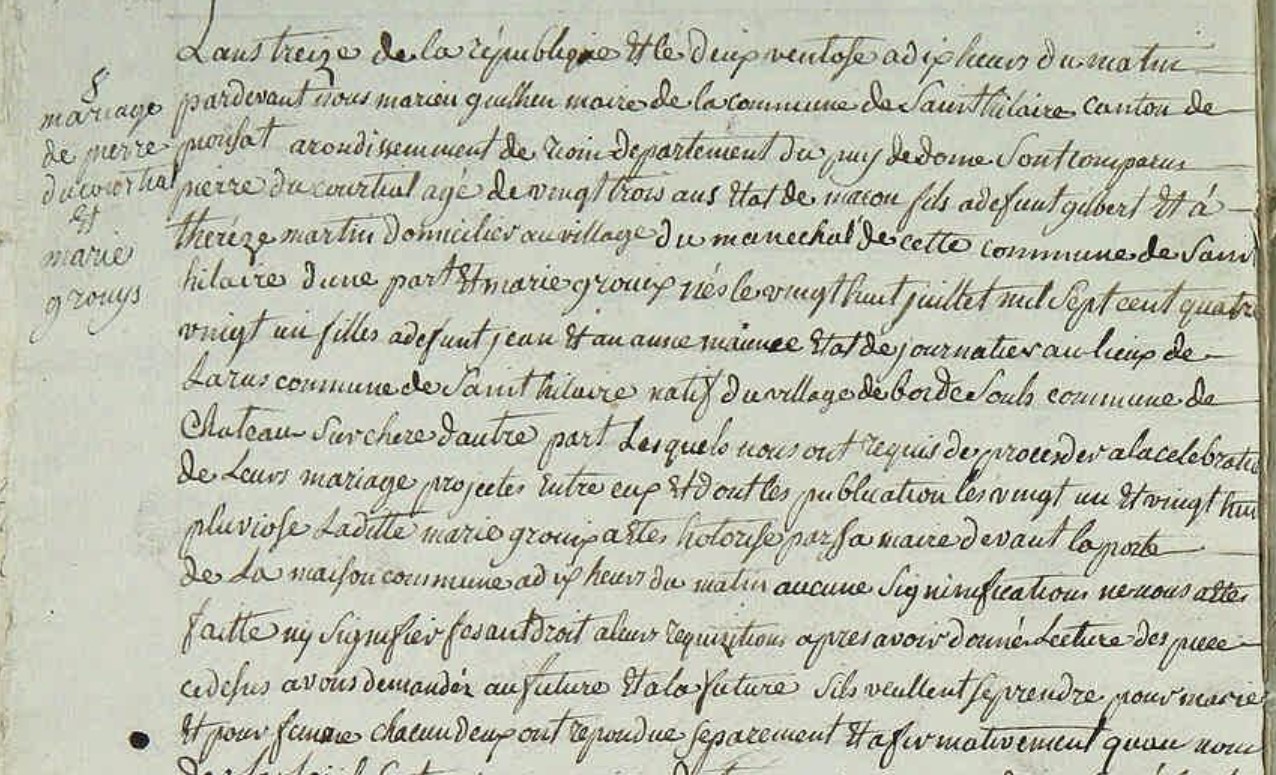 §
mariage
de pierre
ducourtial
Et
marie
grouys
Lans treize de la république Et le deux ventose a dix heurs du matin
pardevant nous marien guilhen maire de la commune de Saint hilaire canton de
pionsat arondissemment de riom departement du puy de dome Sont comparus
pierre du courtial agé de vingt trois ans Etat de macon fils a defunt gilbert Et á
theréze martin domicilier au village du marechal de cette commune de Saint
hilaire dune part Et marie grouix nés le vingt huit juillet mil Sept cent quatre
vingt un filles a defunt jean Et an anne Etat de journalier au lieux de
Larus commune de Saint hilaire natif du village de borde Souls commune de
Chateau Sur chere dautre part Lesquels nous ont requis de proceder a la celebratio
de Leurs mariage projetes Entre eux Et dont les publication les vingt un Et vingt hui
pluviose Laditte marie grouix a Etes hotorise par Sa maire devant la porte
de La maison commune a dix heurs du matin aucune Signinifications ne nous a Etes
faitte ny Signifier fesant droit a leurs requisitions apres avoir donné Lecture des piece
cedesus avons demandéz au future Et a la future Sils veullent Se prendre pour marie
Et pour femme chacun deux ont repondue Separement Et afirmativement quau nom